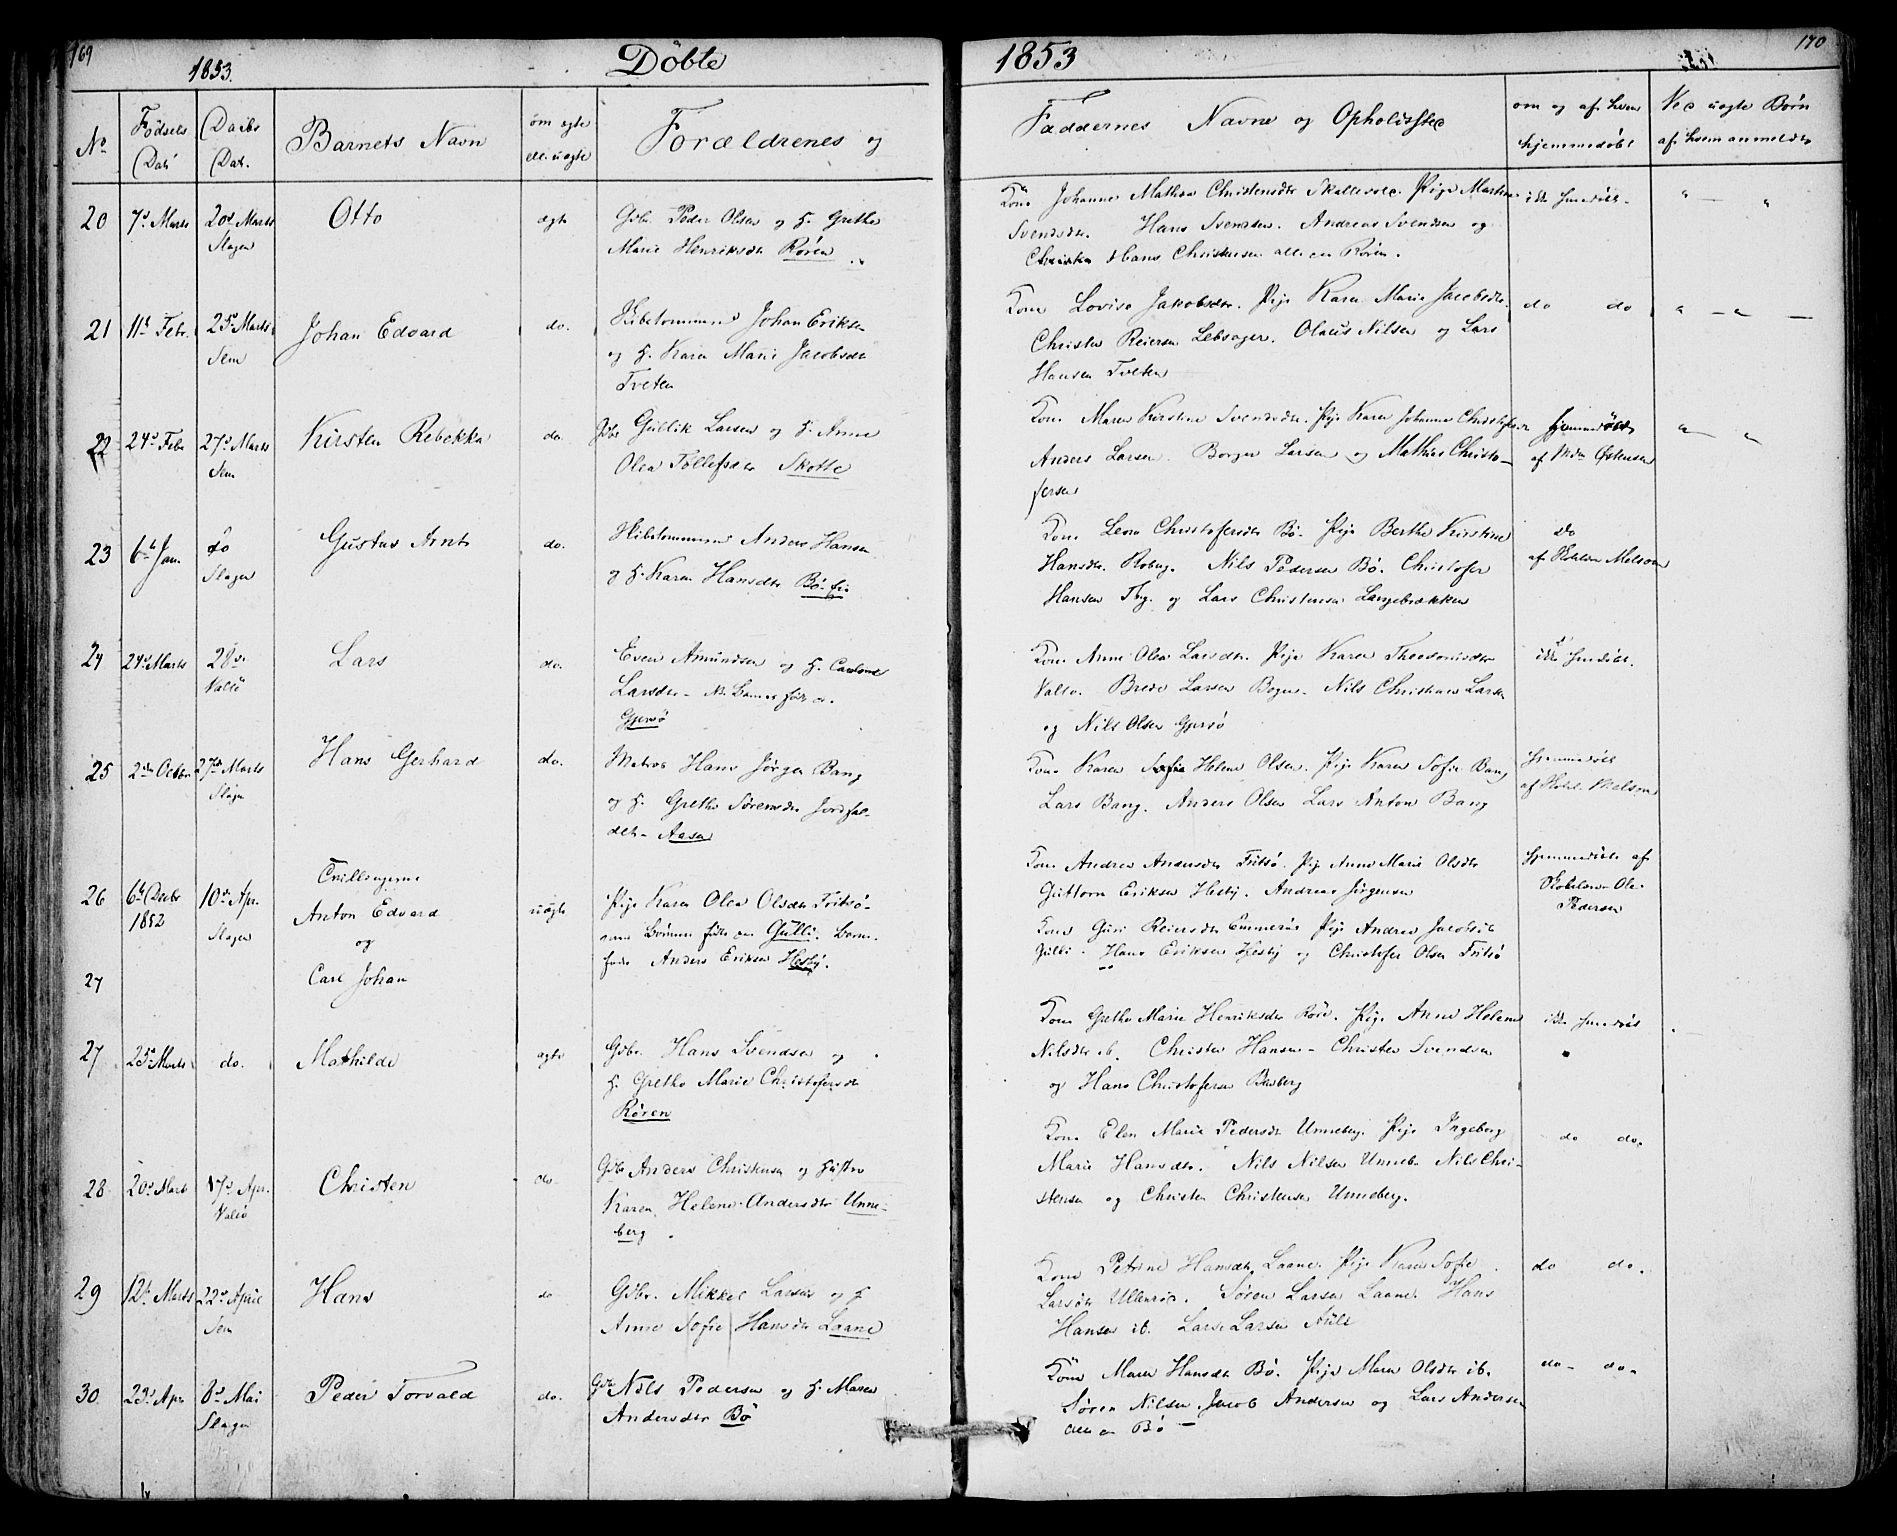 169
1853.
Döbte
No
Födsels Dat:
Daabs Dat.
Barnets Navn
om ægte ell. uægte
Forældrenes og
20
7d Marts
20d Marts Slagen
Otto
ægte
Gbr. Peder Olsen og H. Grethe
Marie Henriksdtr Rören
21
11t Febr.
25d Marts Sem
Johan Edvard
do.
Johan Eriksen
og H. Karen Marie Jacobsdtr
Tveten
22
24d Febr
27d Marts Sem
Kirsten Rebekka
do.
Gbr Gullik Larsen og H. Anne
Olea Tollefsdtr Skotte
23
6t Jan.
do Slagen
Gustav Arnt
do.
Anders Hansen
og H. Karen Hansdtr Bö-eie
24
24d Marts
28d Vallö
Lars
do.
Even Amundsen og H. Caroline
Larsdtr
Gjersö
25
2den Octbr
27d Marts Slagen
Hans Gerhard
do.
Matros Hans Jörgen Bang
og H. Grethe Sörensdtr Jordfal-
det - Aasen
26
6t Decbr 1852
10de Apr. Slagen
Tvillingerne
Anton Edvard
og
uægte
Pige Karen Olea Olsdtr
Gulli. Barne-
fader Anders Eriksen Hesby.
27
Carl Johan
27
25d Marts
do.
Mathilde
ægte
Gbr. Hans Svendsen og
H. Grethe Marie Christofersdtr
Rören
28
20d Marts
17d Apr. Vallö
Christen
do.
Gbr Anders Christensen og Hustru
Karen Helene Andersdtr Unne-
berg.
29
12t Marts
22d April Sem
Hans
do
Gbr. Mikkel Larsen og H.
Anne Sofie Hansdtr Laane
30.
23d Apr
8d Mai Slagen
Peder Torvald
do.
Gbr Nils Pedersen og H. Maren
Andersdtr Bö
1853
170
Faddernes Navne og Opholdssted
om og af hvem hjemmedöbt
Ved uægte Börn af hvem anmeldte
Kone Johanne Mathea Christensdtr Skallevold. Pige Martine
Svendsdtr. Hans Svendsen. Andreas Svendsen og
Hans Christensen alle en Rören.
ikke
" - "
Kone Lovise Jakobsdtr. Pige Karen Marie Jacobsdtr.
Christen Reiersen Olaus Nilsen og Lars
Hansen Tveten
do do
" - " -
Kone Maren Kirstine Svendsdtr. Pige Karen Johanne
Anders Larsen. Borger Larsen og Mathias Christo-
fersen
hjemmedöbt
af Östensen
" - "
Kone Lena Christofersdtr Bö. Pige Berthe Kirstine
Hansdtr. Nils Pedersen Bö. Christofer
Hansen og Lars Christensen Langebrækken
Do
af Melsom
Kone Anne Olea Larsdtr. Pige Karen
Vallö. Brede Larsen Nils Christian Larsen
og Nils Olsen Gjersö
ikke
Kone Karen Sofie Helene Olsen. Pige Karen Sofie Bang
Lars Bang. Anders Olsen Lars Anton Bang
hjemmedöbt
af Melsom
Kone Andrea Andersdtr Pige Anne Marie Olsdtr
Guttorm Eriksen Hesby. Andreas Jörgensen
Kone Guri Reiersdtr Pige Andrea Jacobsdtr
Gulli. Hans Eriksen Hesby og Christofer Olsen
hjemmedöbt af
Ole
Pedersen
Kone Grethe Marie Henriksdtr Pige Anne Helene
Nilsdtr ib. Christen Hansen - Christen Svendsen
og Hans Christofersen
ikke
Kone Elen Marie Pedersdtr Unneberg. Pige Ingeborg
Marie Hansdtr. Nils Nilsen Nils Chri-
stensen og Christen Christensen Unneberg.
do do.
Kone Petrine Hansdtr Laane. Pige Karen Sofie
Larsdtr Sören Larsen Laane. Hans
Hansen ib. Lars Larsen
do do.
Kone Maren Hansdtr Bö. Pige Maren Olsdtr ib.
Sören Nilsen. Jacob Andersen og Lars Andersen
alle en Bö -
do - do -